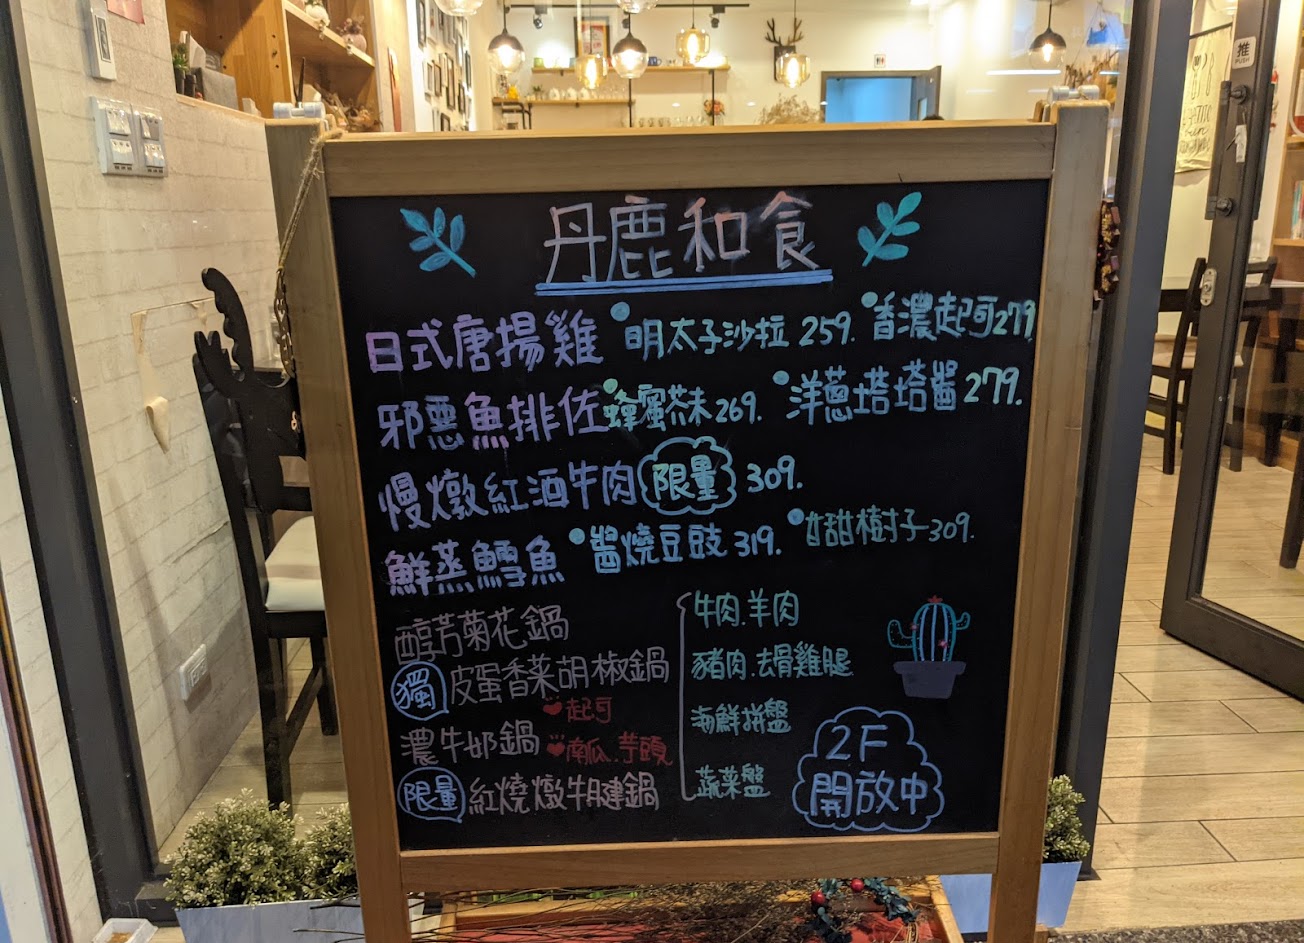 丹鹿和食
日式唐揚雞 明太子沙拉 259. 香濃起司279.
邪惡魚排佐蜂蜜芥末269. 洋蔥塔塔醬279.
慢燉紅酒牛肉 限量 309.
鮮蒸鱈魚 醬燒豆豉319. 甘甜樹子309.
醇芳菊花鍋
獨 皮蛋香菜胡椒鍋
濃牛奶鍋 起司
南瓜.芋頭
限量 紅燒燉牛腱鍋
牛肉.羊肉
豬肉.去骨雞腿
海鮮拼盤
蔬菜盤
2F
開放中
推
PUSH